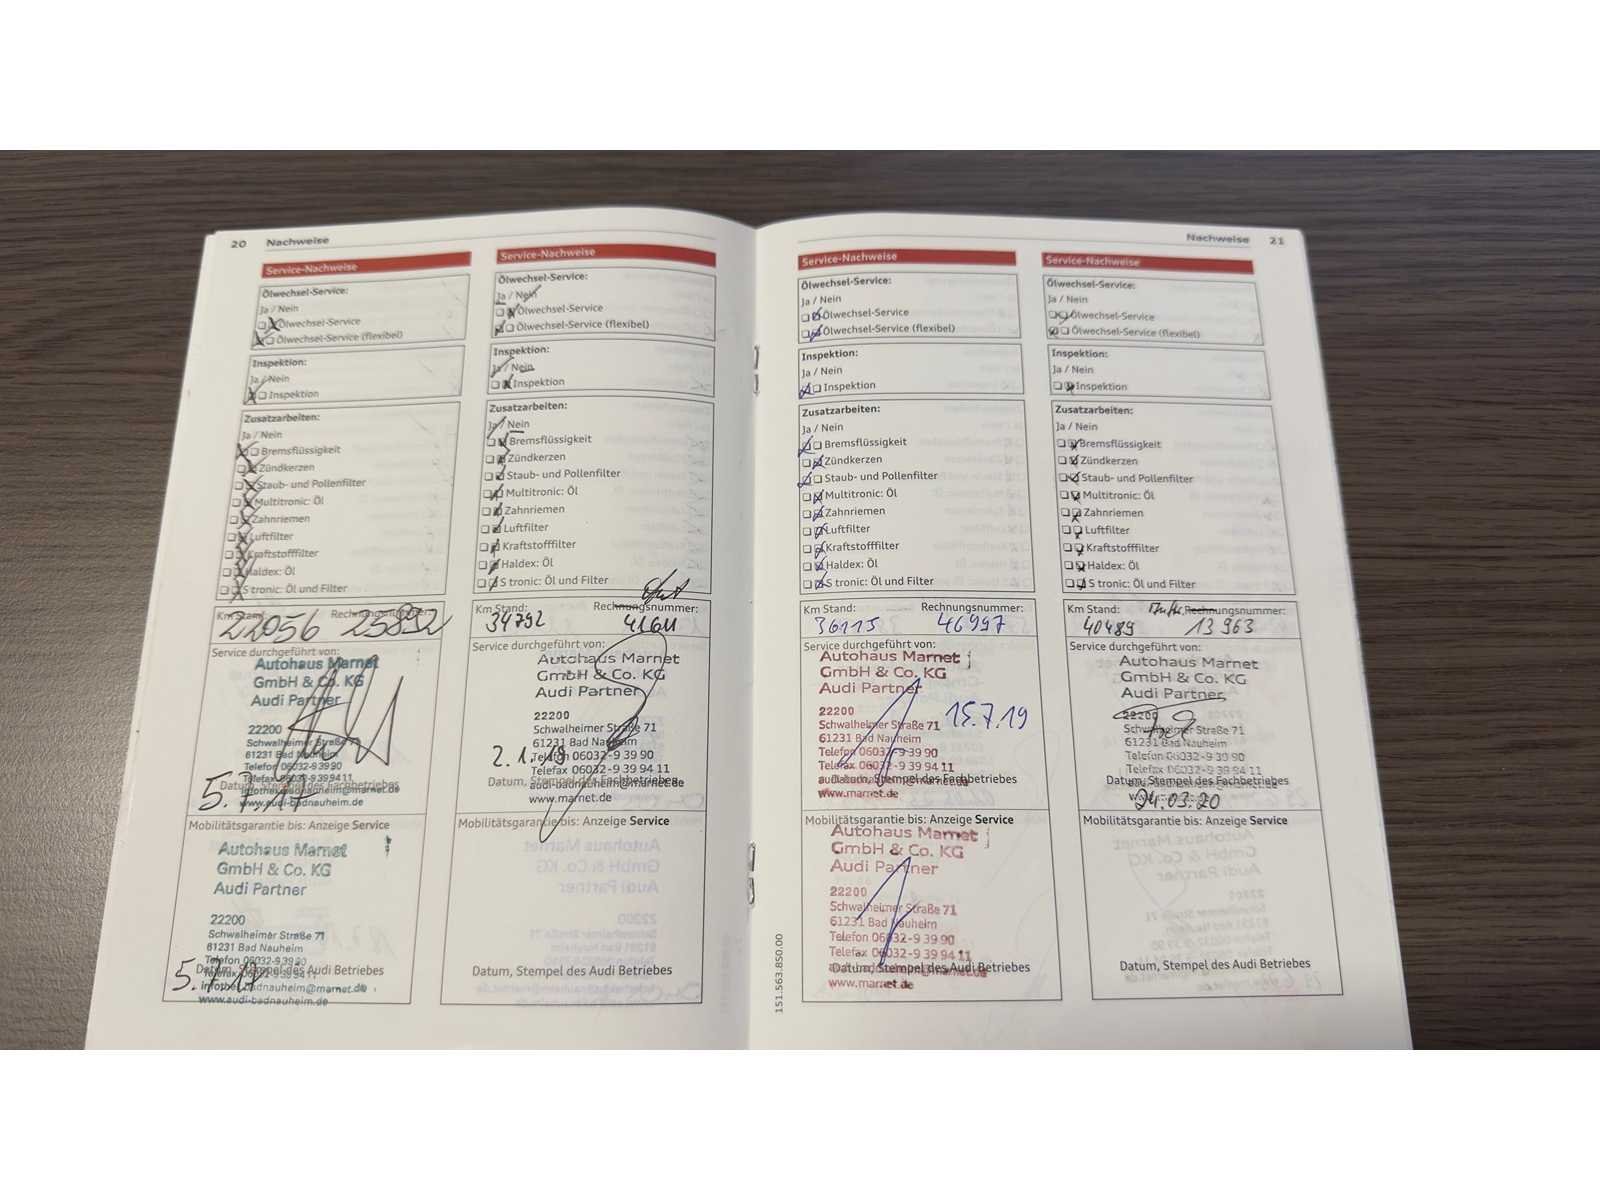 20 Nachweise
Service-Nachweise
Ölwechsel-Service:
Ja / Nein
Ölwechsel-Service
Ölwechsel-Service (flexibel)
Inspektion:
Ja / Nein
Inspektion
Zusatzarbeiten:
Ja / Nein
Bremsflüssigkeit
Zündkerzen
Staub- und Pollenfilter
Multitronic: Öl
Zahnriemen
Luftfilter
Kraftstofffilter
Haldex: Öl
S tronic: Öl und Filter
Km Stand: Rechnungsnummer:
22056 25892
Service durchgeführt von:
Autohaus Marnet
GmbH & Co. KG
Audi Partner
22200
Schwalheimer Straße 71
61231 Bad Nauheim
Telefon 06032-9 39 90
Telefax 06032-9 39 94 11
Datum, Stempel des Fachbetriebes
infothek.badnauheim@marnet.de
www.audi-badnauheim.de
5.7.17
Mobilitätsgarantie bis: Anzeige Service
Autohaus Marnet
GmbH & Co. KG
Audi Partner
22200
Schwalheimer Straße 71
61231 Bad Nauheim
Telefon 06032-9 39 90
Datum, Stempel des Audi Betriebes
Telefax 06032-9 39 94 11
5.7.17
www.audi-badnauheim.de
Service-Nachweise
Ölwechsel-Service:
Ja / Nein
Ölwechsel-Service
Ölwechsel-Service (flexibel)
Inspektion:
Ja / Nein
Inspektion
Zusatzarbeiten:
Ja / Nein
Bremsflüssigkeit
Zündkerzen
Staub- und Pollenfilter
Multitronic: Öl
Zahnriemen
Luftfilter
Kraftstofffilter
Haldex: Öl
S tronic: Öl und Filter
Km Stand: Rechnungsnummer:
34792
Service durchgeführt von:
Autohaus Marnet
GmbH & Co. KG
Audi Partner
22200
Schwalheimer Straße 71
61231 Bad Nauheim
Telefon 06032-9 39 90
Telefax 06032-9 39 94 11
Datum, Stempel des Fachbetriebes
audi-badnauheim@marnet.de
www.marnet.de
Mobilitätsgarantie bis: Anzeige Service
Datum, Stempel des Audi Betriebes
Nachweise 21
Service-Nachweise
Ölwechsel-Service:
Ja / Nein
Ölwechsel-Service
Ölwechsel-Service (flexibel)
Inspektion:
Ja / Nein
Inspektion
Zusatzarbeiten:
Ja / Nein
Bremsflüssigkeit
Zündkerzen
Staub- und Pollenfilter
Multitronic: Öl
Zahnriemen
Luftfilter
Kraftstofffilter
Haldex: Öl
S tronic: Öl und Filter
Km Stand: Rechnungsnummer:
36115 46997
Service durchgeführt von:
Autohaus Marnet
GmbH & Co. KG
Audi Partner
15.7.19
22200
Schwalheimer Straße 71
61231 Bad Nauheim
Telefon 06032-9 39 90
Telefax 06032-9 39 94 11
Datum, Stempel des Fachbetriebes
www.marnet.de
Mobilitätsgarantie bis: Anzeige Service
Autohaus Marnet
GmbH & Co. KG
Audi Partner
22200
Schwalheimer Straße 71
61231 Bad Nauheim
Telefon 06032-9 39 90
Telefax 06032-9 39 94 11
Datum, Stempel des Audi Betriebes
www.marnet.de
151.563.850.00
Service-Nachweise
Ölwechsel-Service:
Ja / Nein
Ölwechsel-Service
Ölwechsel-Service (flexibel)
Inspektion:
Ja / Nein
Inspektion
Zusatzarbeiten:
Ja / Nein
Bremsflüssigkeit
Zündkerzen
Staub- und Pollenfilter
Multitronic: Öl
Zahnriemen
Luftfilter
Kraftstofffilter
Haldex: Öl
S tronic: Öl und Filter
Km Stand: Rechnungsnummer:
40489 13963
Service durchgeführt von:
Autohaus Marnet
GmbH & Co. KG
Audi Partner
22200
Schwalheimer Straße 71
61231 Bad Nauheim
Telefon 06032-9 39 90
Telefax 06032-9 39 94 11
Datum, Stempel des Fachbetriebes
24.03.20
Mobilitätsgarantie bis: Anzeige Service
Datum, Stempel des Audi Betriebes